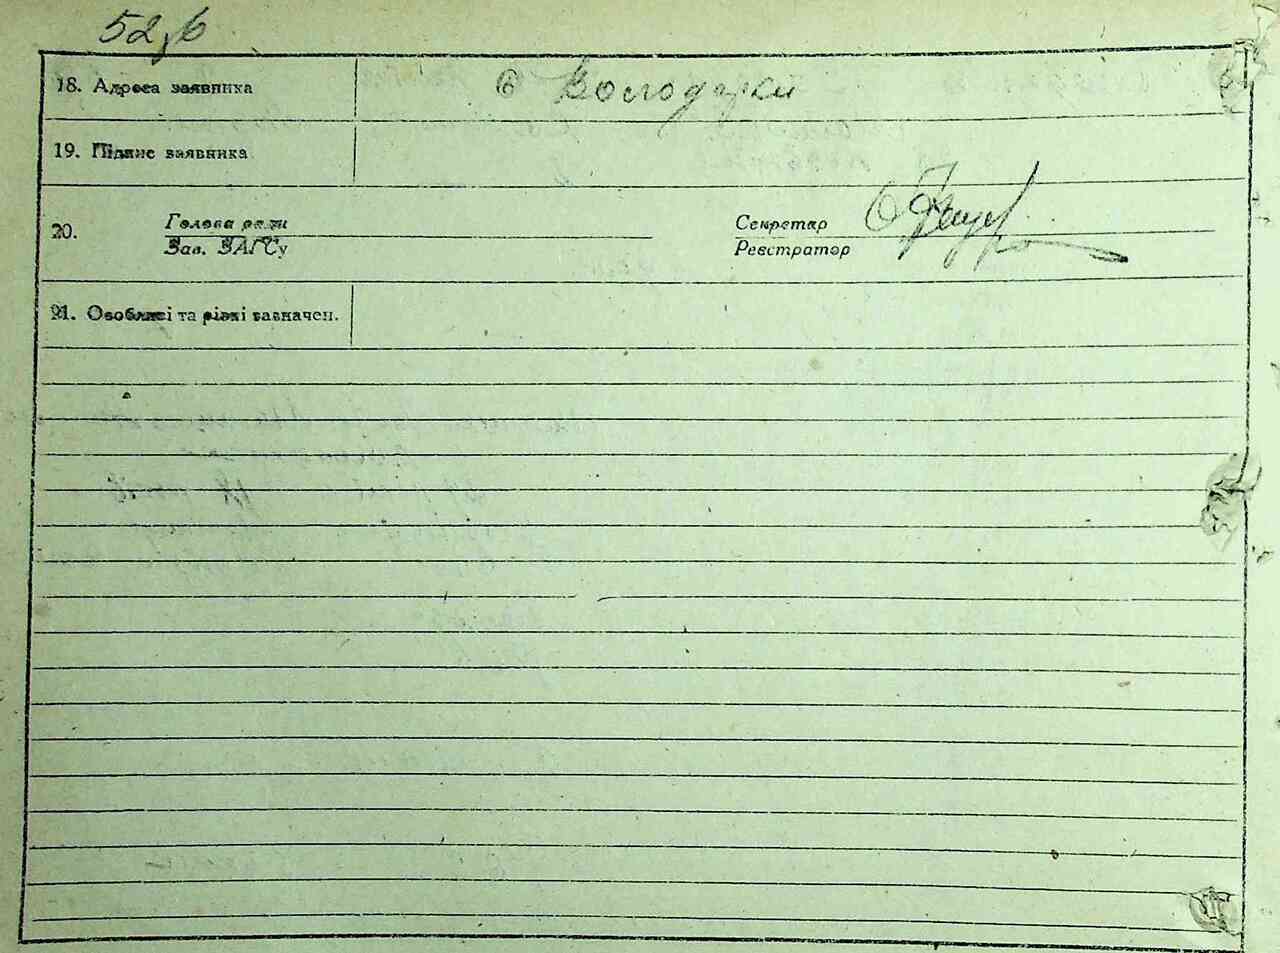 52,б
18. Адреса заявника с Володарки
19. Підпис заявника
20. Голова ради Секретар
Зав. ЗАГСу Реєстратор
21. Особливі та різні зазначен.